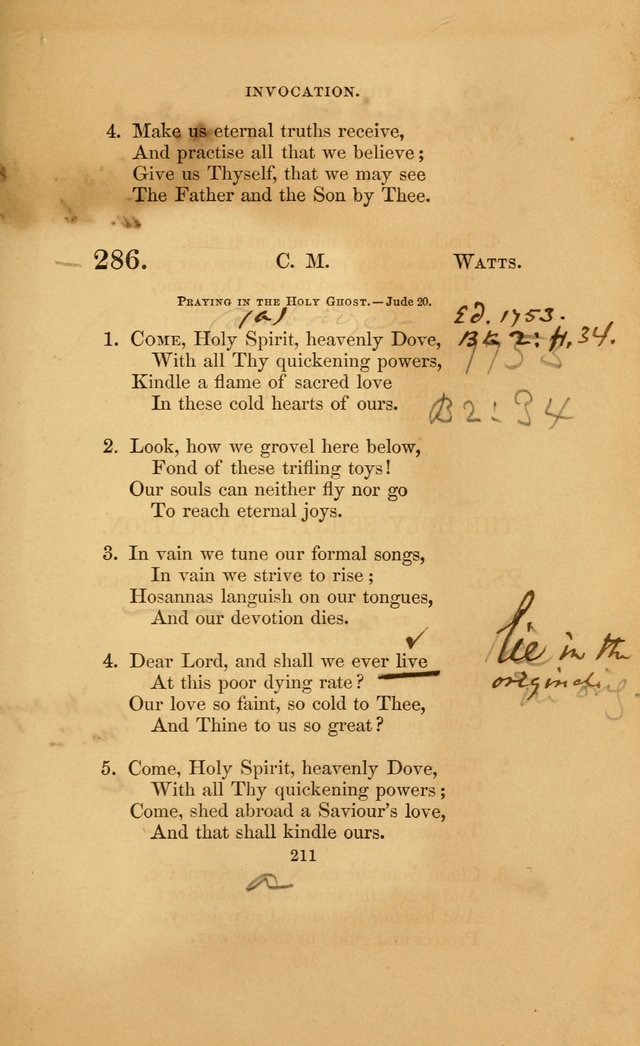 INVOCATION.
4. Make us eternal truths receive,
And practise all that we believe;
Give us Thyself, that we may see
The Father and the Son by Thee.
286. C. M. WATTS.
PRAYING IN THE HOLY GHOST.—Jude 20.
(a) Ed. 1753.
1. COME, Holy Spirit, heavenly Dove, Bk 2: H, 34.
With all Thy quickening powers, 1753
Kindle a flame of sacred love
In these cold hearts of ours. B 2: 34
2. Look, how we grovel here below,
Fond of these trifling toys!
Our souls can neither fly nor go
To reach eternal joys.
3. In vain we tune our formal songs,
In vain we strive to rise;
Hosannas languish on our tongues,
And our devotion dies.
4. Dear Lord, and shall we ever live lie in the
At this poor dying rate? original
Our love so faint, so cold to Thee, in orig.
And Thine to us so great?
5. Come, Holy Spirit, heavenly Dove,
With all Thy quickening powers;
Come, shed abroad a Saviour's love,
And that shall kindle ours.
211
a